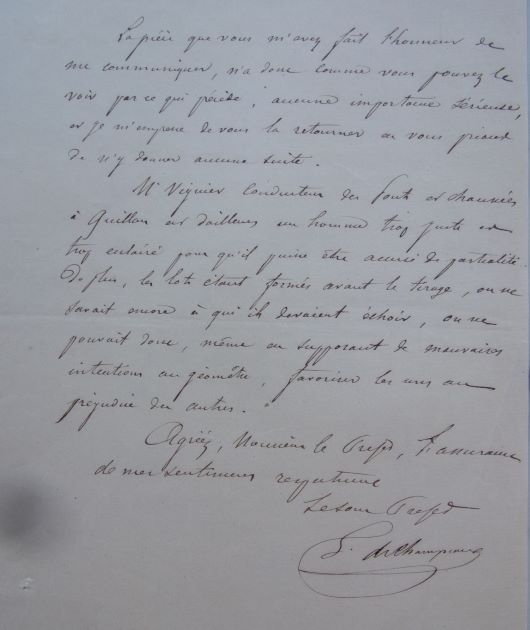 La pièce que vous m'avez fait l'honneur de
me communiquer, n'a donc comme vous pouvez le
voir par ce qui précède, aucune importance sérieuse,
et je m'empresse de vous la retourner en vous priant
de n'y donner aucune suite.
Mr Vignier Conducteur des Ponts et chaussées
à Quillan est d'ailleurs un homme trop juste et
trop éclairé pour qu'il puisse être accusé de partialité.
De plus, les lots étant formés avant le tirage, on ne
savait encore à qui ils devaient échoir, on ne
pouvait donc, même en supposant de mauvaises
intentions au géomètre, favoriser les uns au
préjudice des autres.
Agréez, Monsieur le Préfet, l'assurance
de mes sentiments respectueux
Le sous Préfet